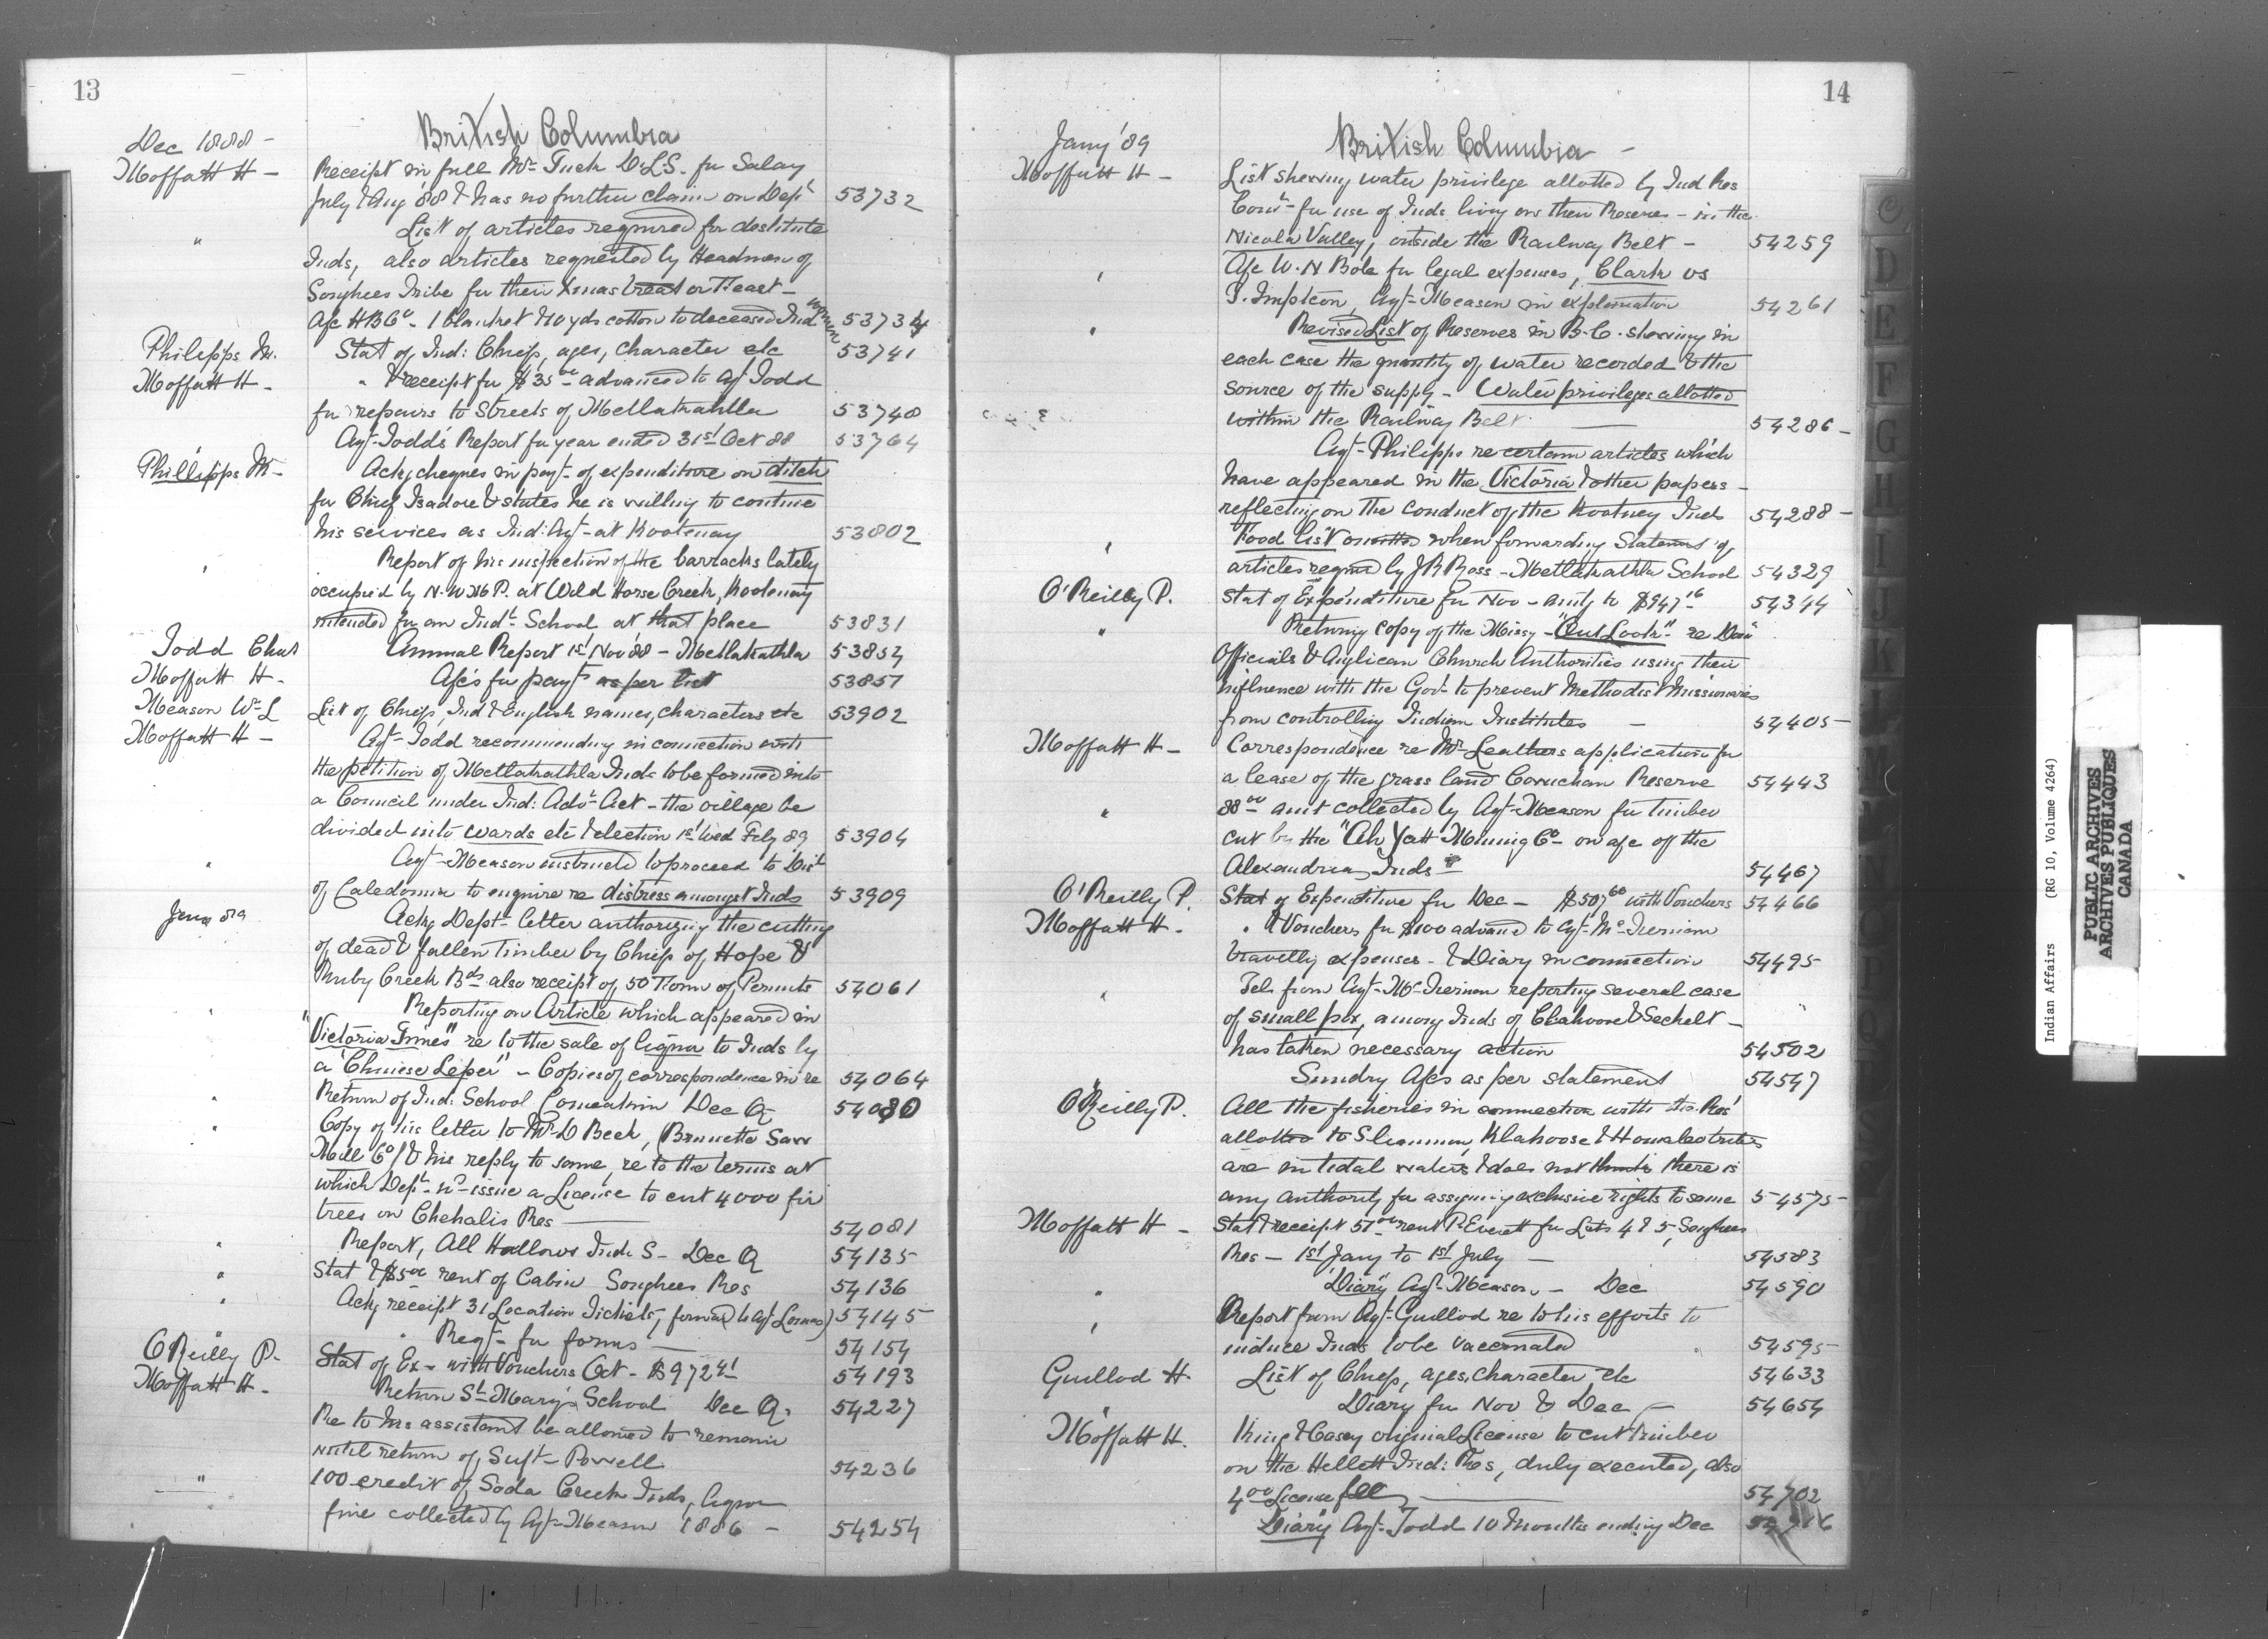 13
British Columbia
Dec 1888 -
Moffatt H -
Receipt in full Mr Tuck D.L.S. for Salary
July & Aug 88 & has no further claim on Dept
53732
"
List of articles required for destitute
Inds, also articles requested by Headmen of
Songhees Tribe for their Xmas treat or Feast -
A/c HBCo - 1 blanket & 10 yds cotton to deceased Ind woman
53734
Philipps M.
Stat of Ind: Chiefs, ages, character etc
53741
Moffatt H -
" & receipt for $35.00 advanced to Agt Todd
for repairs to Streets of Metlakahtla
53748
Agt Todd's Report for year ended 31st Oct 88
53764
Phillipps M -
Ackg cheques in payt of expenditure on ditch
for Chief Isadore & states he is willing to continue
his services as Ind: Agt at Kootenay
53802
"
Report of his inspection of the barracks lately
occupied by N.W.M.P. at Wild Horse Creek, Kootenay
intended for an Indl School at that place
53831
Todd Chas
Annual Report 1st Nov 88 - Metlakahtla
53854
Moffatt H -
A/cs for payt as per list
53857
Meason Wm L
List of Chiefs, Ind & English names, characters etc
53902
Moffatt H -
Agt Todd recommending in connection with
the petition of Metlakahtla Inds to be formed into
a Council under Ind: Advt Act - the village be
divided into wards etc & election 1st Wed Feby 89
53904
"
Agt Meason instructed to proceed to Dist
of Caledonia to enquire re distress amongst Inds
53909
Jany 89
Ackg Dept letter authorizing the cutting
of dead & fallen timber by Chiefs of Hope &
Ruby Creek Bds also receipt of 50 Form of Permits
54061
"
Reporting on Article which appeared in
"Victoria Times" re to the sale of liquor to Inds by
a "Chinese Leper" - Copies of correspondence in re
54064
"
Return of Ind: School Comeakin Dec Q
54080
"
Copy of his letter to Mr D Beck, (Brunette Saw
Mill Co) & his reply to same, re to the terms at
which Dept wd issue a License to cut 4000 fir
trees on Chehalis Res
54081
"
Report, All Hallows Inds S - Dec Q
54135
"
Stat & $5.00 rent of Cabin Songhees Res
54136
"
Ackg receipt 31 Location Tickets, forwd to Agt Lomas)
54145
" Reqt for forms
54154
O'Reilly P.
Stat of Ex - with Vouchers Oct - $972.41
54193
Moffatt H -
Return St Mary's School Dec Q.
54227
Re to his assistant be allowed to remain
until return of Supt Powell
54236
"
100 credit of Soda Creek Inds, liquor
fine collected by Agt Meason 1886 -
54254
14
British Columbia -
Jany '89
Moffatt H -
List shewing water privilege allotted by Ind Res
Comr for use of Inds living on their Reserves - in the
Nicola Valley, outside the Railway Belt -
54259
"
A/c W.N Bole for legal expenses, Clark vs
T. Impteon, Agt Meason in explanation
54261
"
Revised List of Reserves in B.C. shewing in
each case the quantity of water recorded & the
source of the supply - Water privileges allotted
within the Railway Belt
54286 -
Agt Philipps re certain articles which
have appeared in the Victoria & other papers -
reflecting on the conduct of the Kootney Inds
54288 -
"
Food list omitted when forwarding Statemt of
articles reqred by J R Ross - Metlakahtla School
54329
O'Reilly P.
Stat of Expenditure for Nov - amtg to $947.16
54344
"
Returng copy of the Missy - "Out Look" re Domn
Officials & Anglican Church Authorities using their
influence with the Govt to prevent Methodist Missionaries
from controlling Indian Institutes -
54405 -
Moffatt H -
Correspondence re Mr Leathers application for
a lease of the grass land Cowichan Reserve
54443
"
88.00 amt collected by Agt Meason for timber
cut by the "Ah Yatt Mining Co on a/c of the
Alexandria Inds
54467
O'Reilly P.
Stat of Expenditure for Dec - $507.60 with Vouchers
54466
Moffatt H -
" & Vouchers for $100 advanced to Agt McTiernan
travellg expenses - & Diary in connection
54495
"
Tel: from Agt McTiernan reporting several case
of small pox, among Inds of Clahoose & Sechelt -
has taken necessary action
54502
Sundry A/cs as per statement
54547
O'Reilly P.
All the fisheries in connection with the Res'
allotted to Sliammon, Klahoose & Homalco tribes
are in tidal waters & does not think there is
any authority for assigning exclusive rights to same
54575 -
Moffatt H -
Stat & receipt 51.00 rent P. Everett for Lots 4 & 5, Songhees
Res - 1st Jany to 1st July -
54583
"
Diary Agt Meason - Dec
54590
"
Report from Agt Guillod re to his efforts to
induce Inds to be vaccinated
54595 -
Guillod H.
List of Chiefs, ages, character, etc
54633
"
Diary for Nov & Dec -
54654
Moffatt H.
King & Casey original License to cut timber
on the Hellett Ind: Res, duly executed, also
4.00 License fee
54702
Diary Agt Todd 10 Months ending Dec
54716
C
D
E
F
G
H
I
J
K
L
M
Indian Affairs (RG 10, Volume 4264)
PUBLIC ARCHIVES
ARCHIVES PUBLIQUES
CANADA